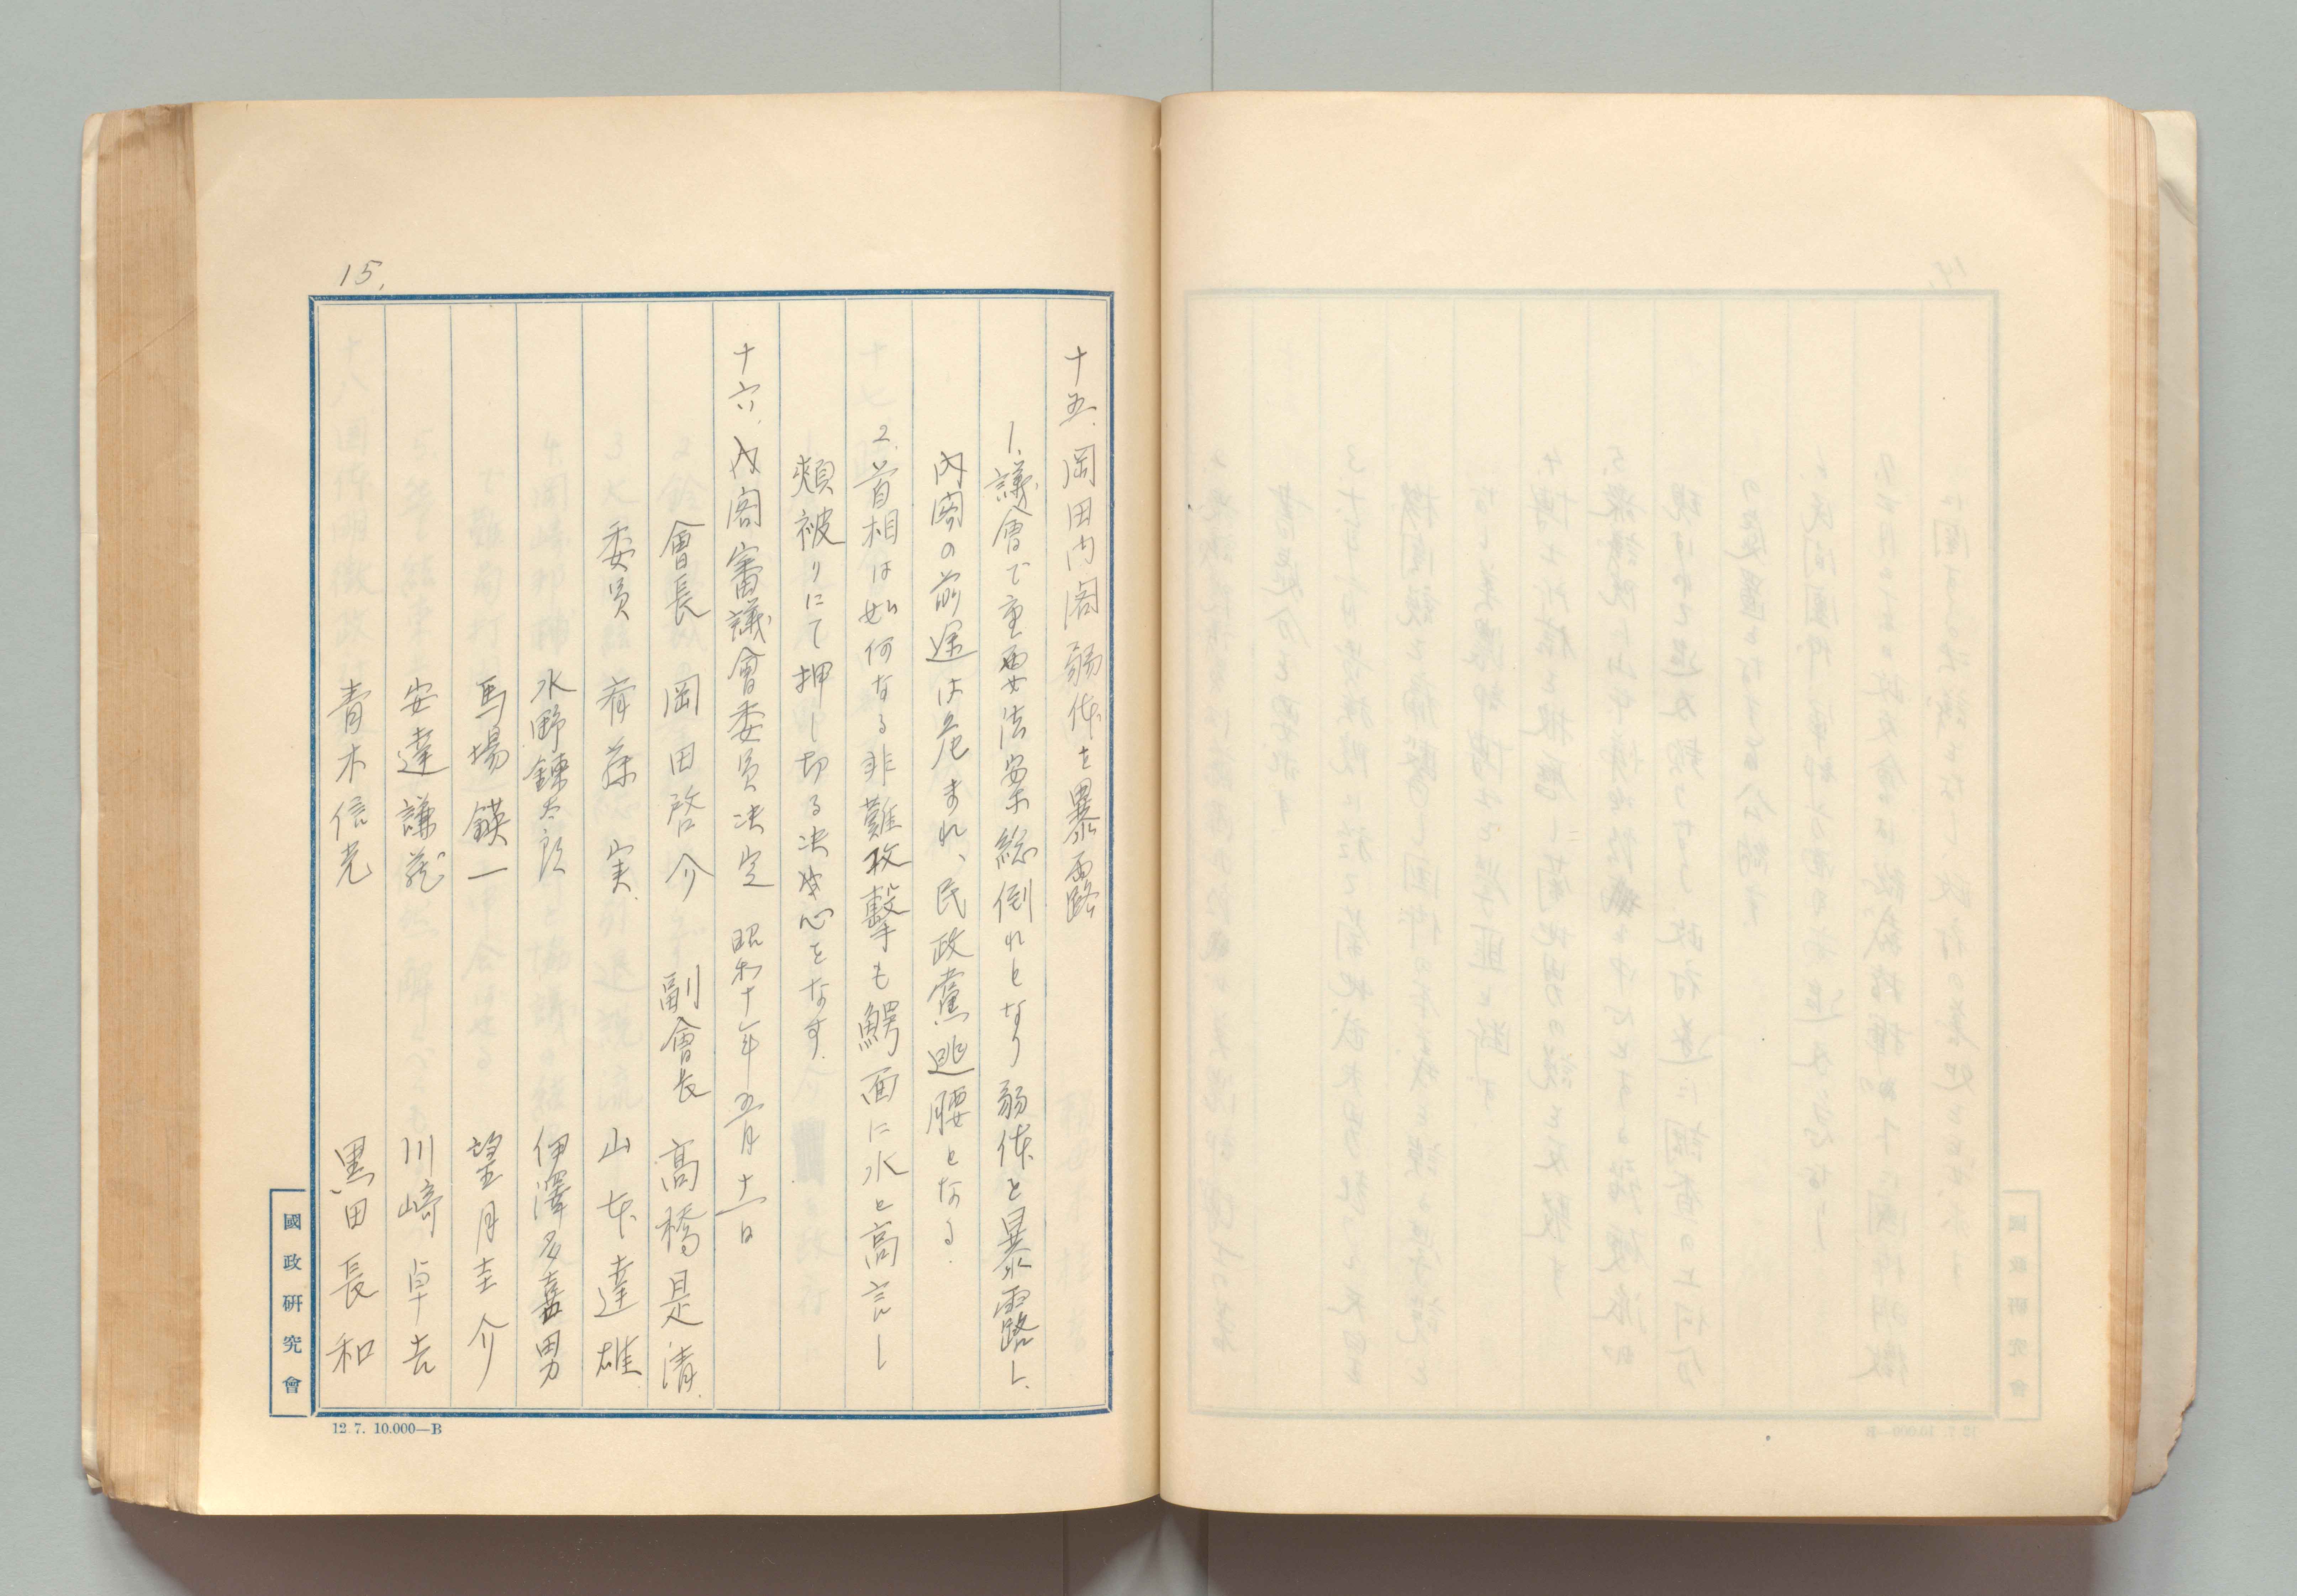 15.
十五、岡田内閣弱体を暴露
1.議會で重要法案総倒れとなり弱体を暴露し、
内閣の前途は危まれ、民政黨逃腰となる.
2.首相は如何なる非難攻擊も鰐面に水と高言し
頬被りにて押し切る決心をなす.
十六.内閣審議會委員決定 昭和十年五月十一日
會長 岡田啓介 副會長 高橋是清.
委員 斉藤 実. 山本達雄
水野錬太郎 伊澤多喜男
馬場鍈一 望月圭介
安達謙蔵 川崎卓吉
青木信光 黒田長和
國政研究會
12. 7. 10.000—B